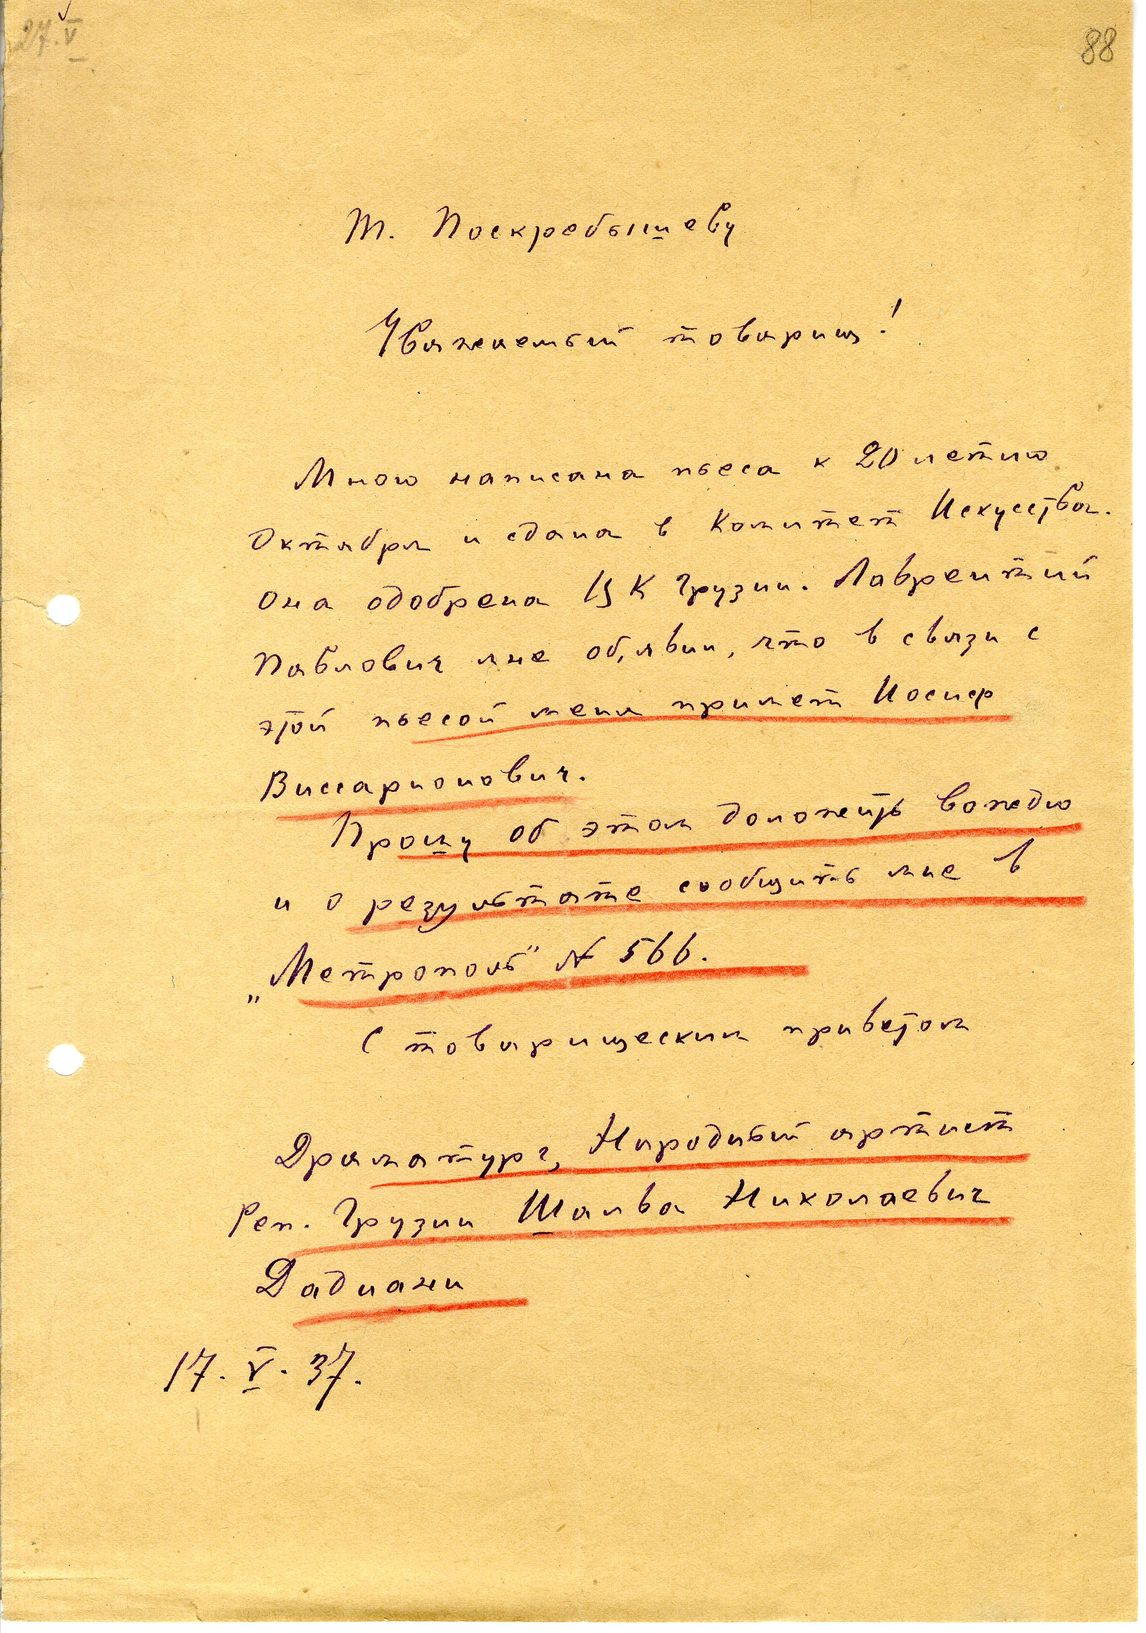 27.V
88
Т. Поскребышеву
Уважаемый товарищ!
Мною написана пьеса к 20 летию
Октября и сдана в Комитет Искусства.
Она одобрена ЦК Грузии. Лаврентий
Павлович мне об,явил, что в связи с
этой пьесой меня примет Иосиф
Виссарионович.
Прошу об этом доложить вождю
и о результате сообщить мне в
„Метрополь" № 566.
С товарищеским приветом
Драматург, Народный артист
Реп. Грузии Шалва Николаевич
Дадиани
17.V.37.